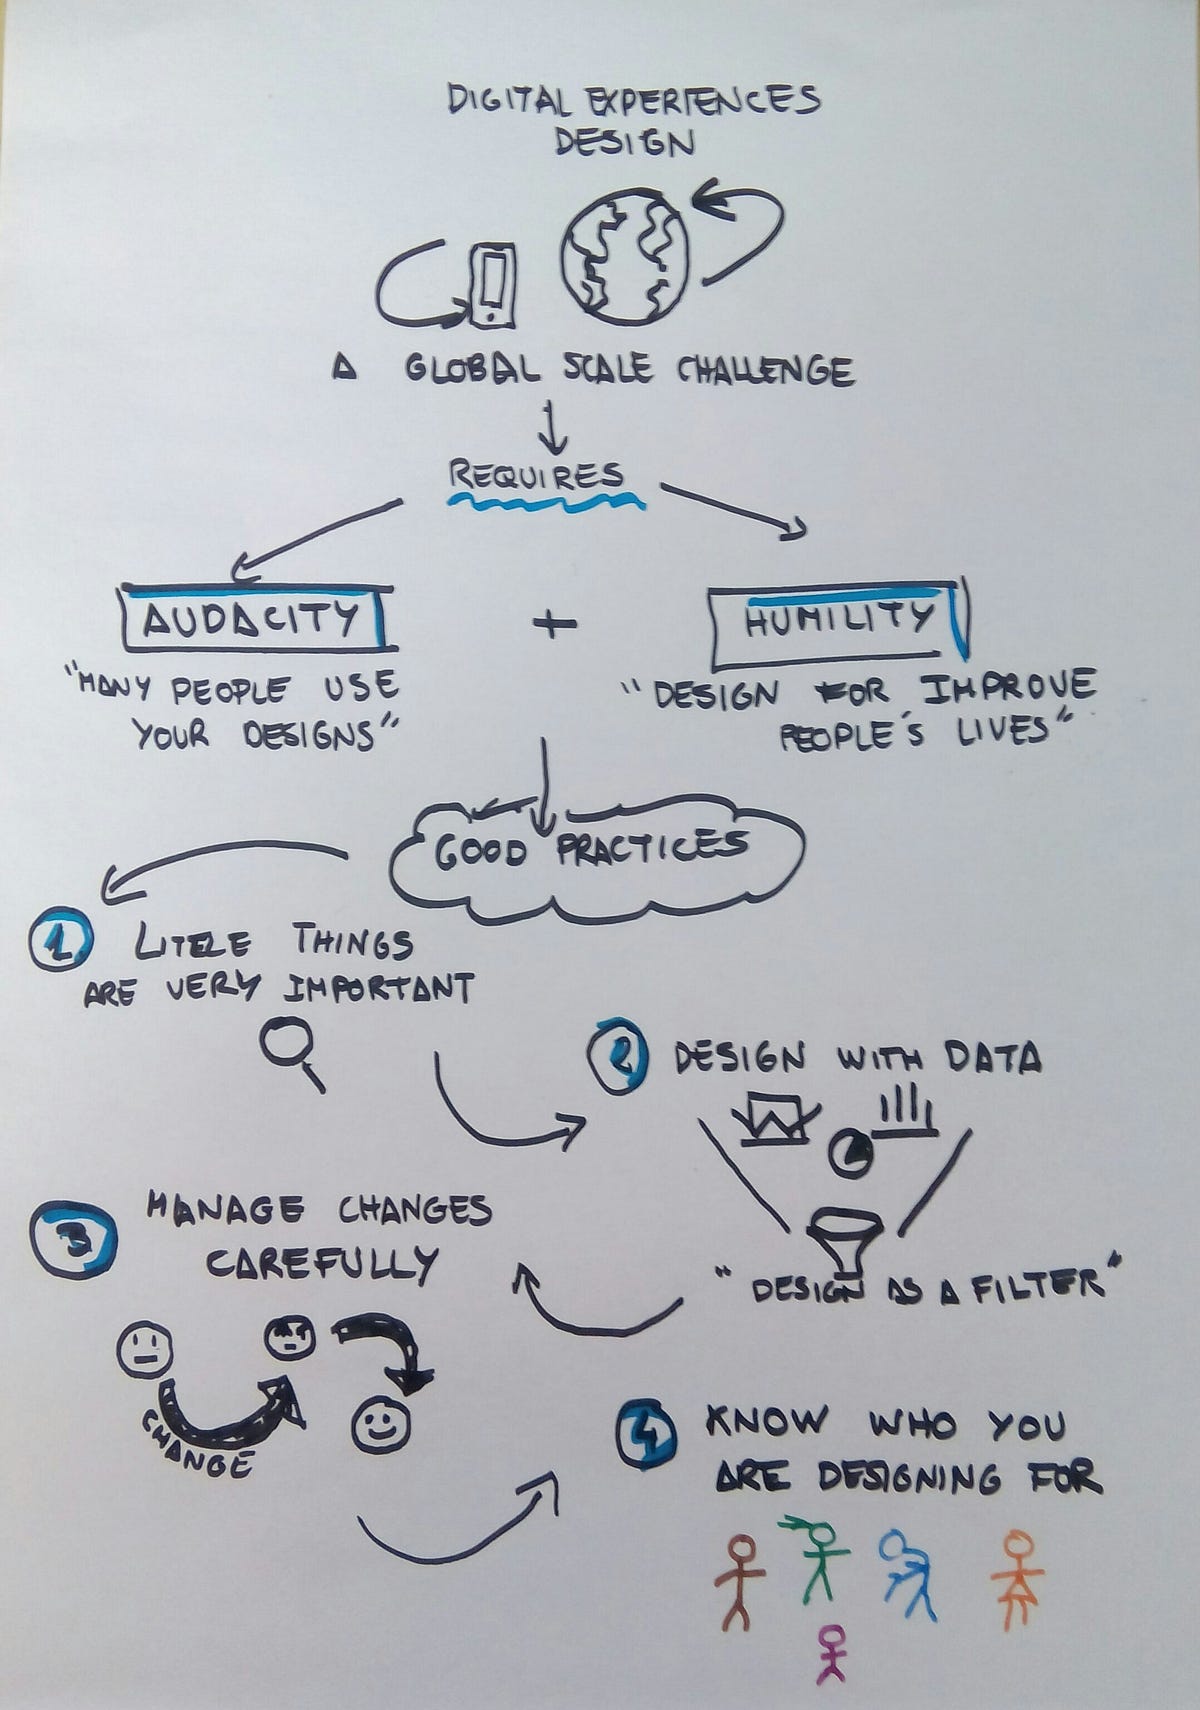 DIGITAL EXPERIENCES
DESIGN
A GLOBAL SCALE CHALLENGE
REQUIRES
AUDACITY + HUMILITY
"MANY PEOPLE USE
YOUR DESIGNS"
"DESIGN FOR IMPROVE
PEOPLE'S LIVES"
GOOD PRACTICES
1. LITTLE THINGS
ARE VERY IMPORTANT
2 DESIGN WITH DATA
"DESIGN AS A FILTER"
3 MANAGE CHANGES
CAREFULLY
CHANGE
4 KNOW WHO YOU
ARE DESIGNING FOR